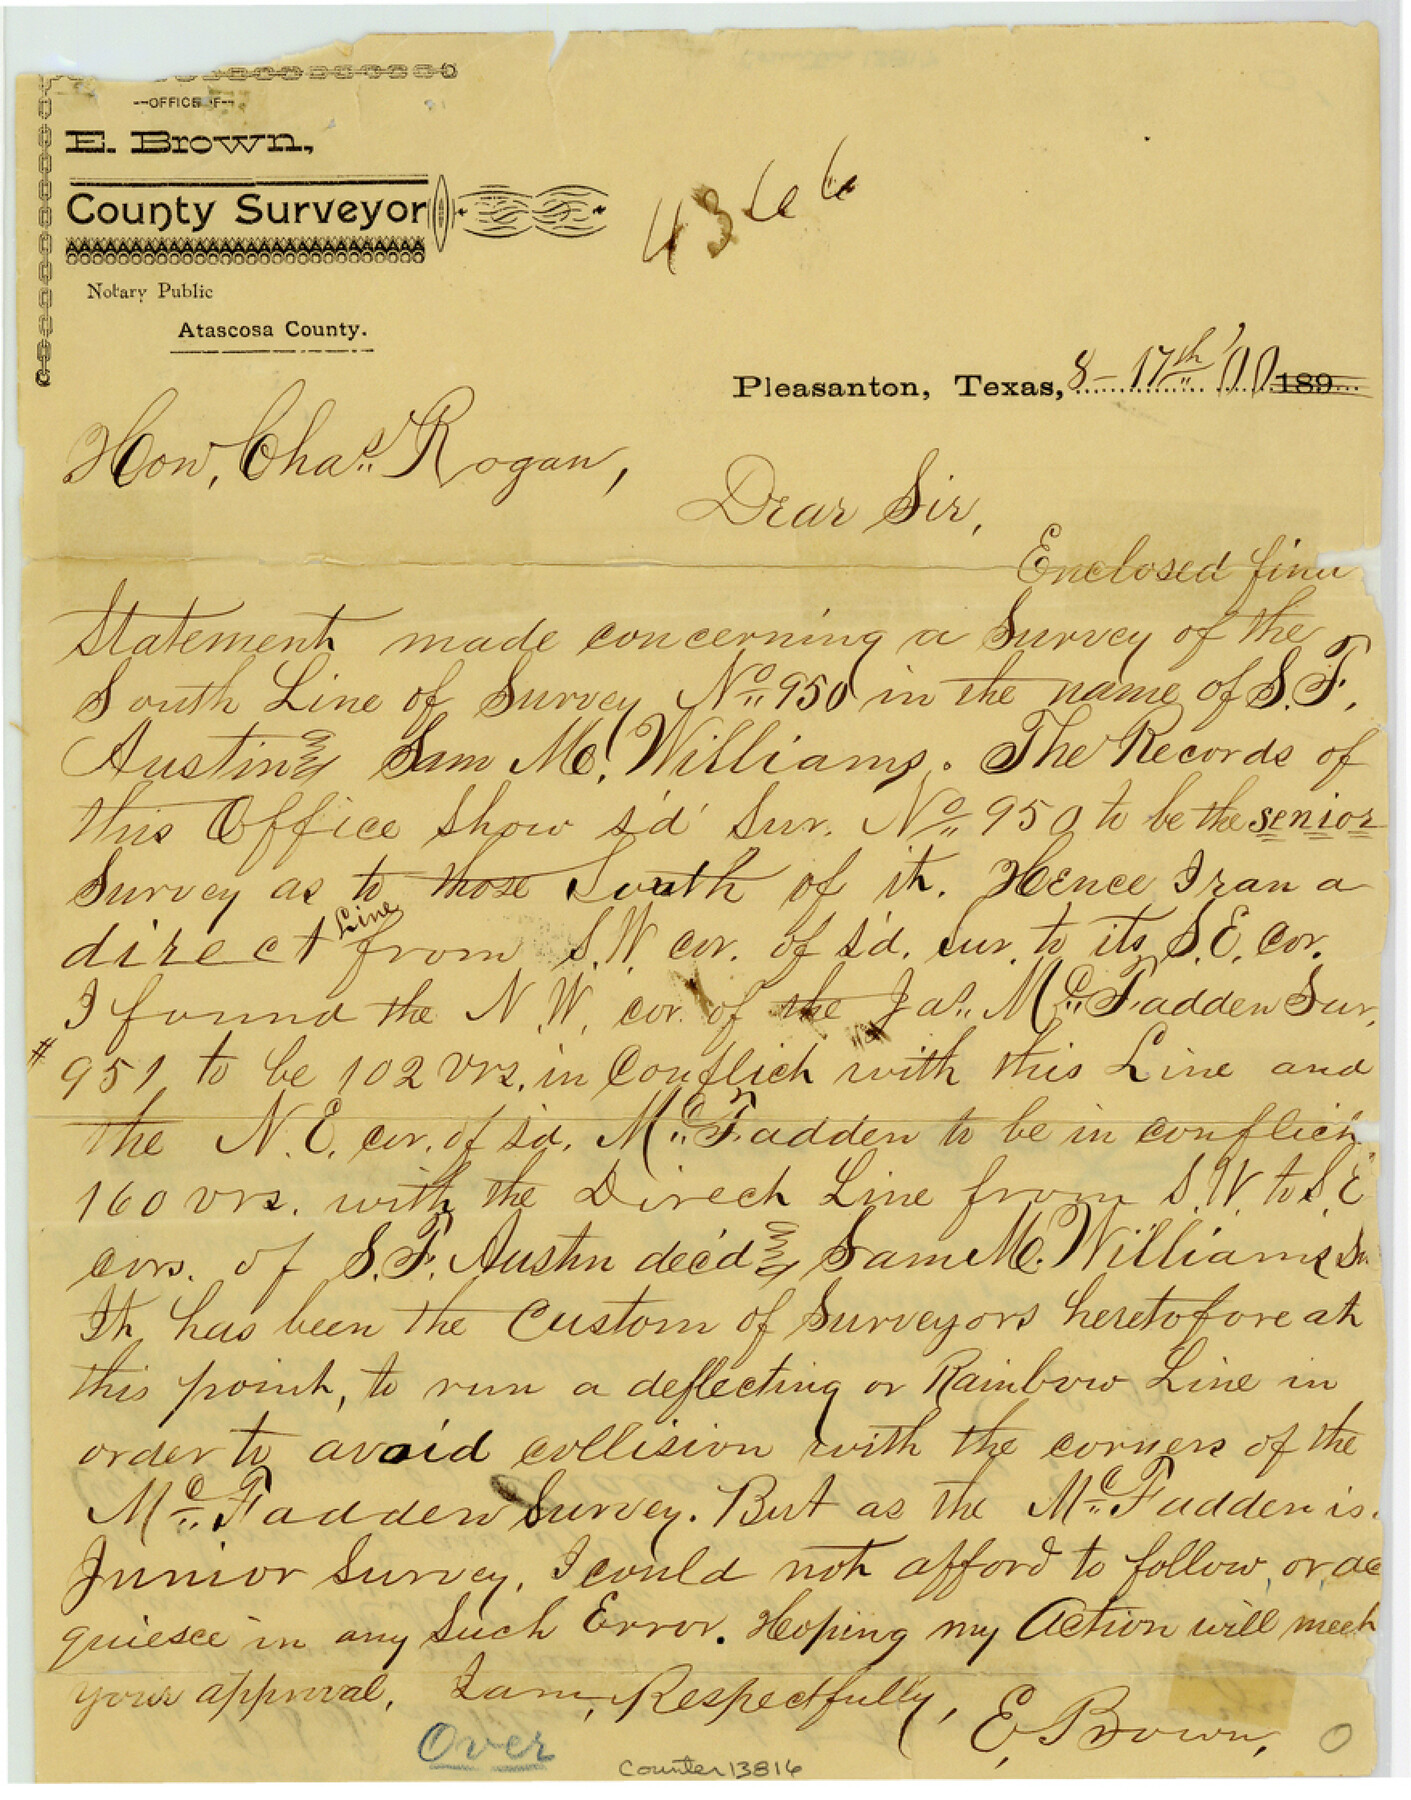 --OFFICE OF--
E. Brown,
County Surveyor
Notary Public
Atascosa County.
4366
Pleasanton, Texas, 8-17th '00 189
Hon, Chas. Rogan,
Dear Sir,
Enclosed find
Statement made concerning a Survey of the
South Line of Survey No. 950 in the name of S. F.
Austin & Sam M. Williams. The Records of
this Office show s'd' Sur. No. 950 to be the senior
Survey as to those South of it. Hence I ran a
direct Line from S.W. cor. of s'd. sur. to its S.E. cor.
I found the N.W. cor. of the Jas. McFadden Sur.
#951 to be 102 vrs. in Conflict with this Line and
the N.E. cor. of s'd. McFadden to be in conflict
160 vrs. with the Direct Line from S.W. to S.E
cors. of S.F. Austin dec'd & Sam M. Williams Su
It has been the Custom of Surveyors heretofore at
this point, to run a deflecting or Rainbow Line in
order to avoid collision with the corners of the
McFadden Survey. But as the McFadden is
Junior Survey, I could not afford to follow, or ac
quiesce in any Such Error. Hoping my Action will meet
your approval, I am, Respectfully,
E. Brown,
Over
Counter 13816